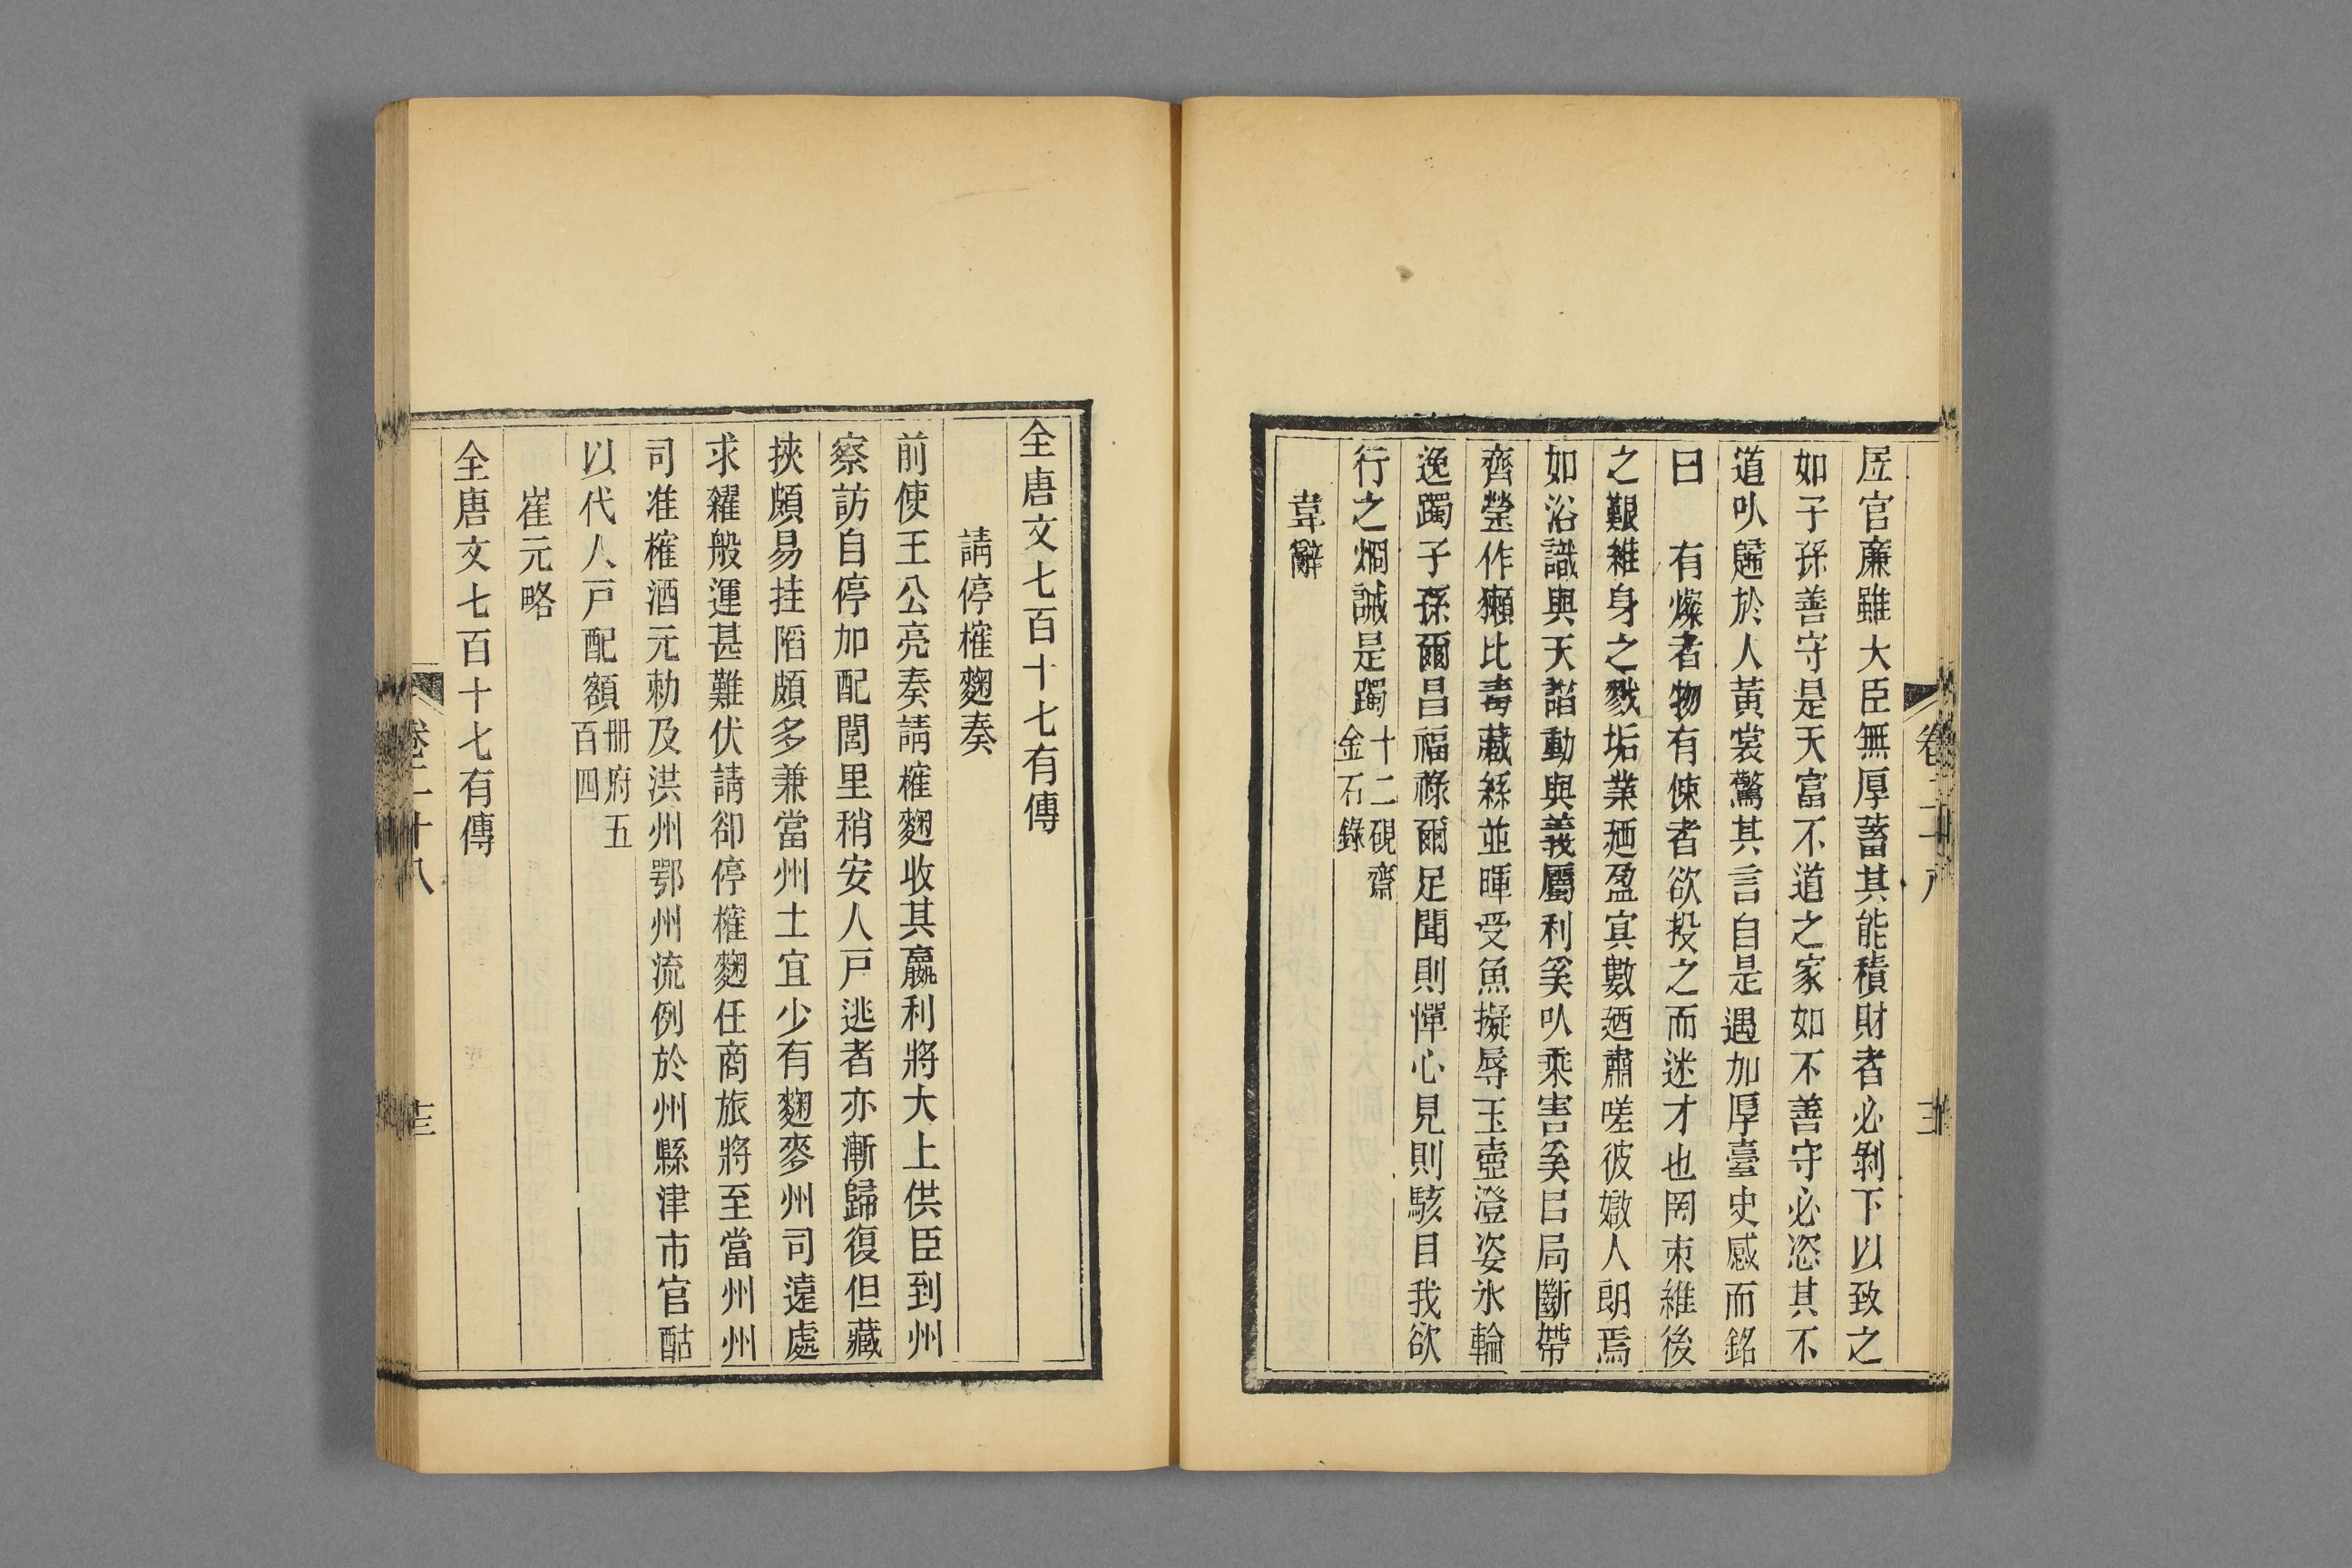 居官廉雖大臣無厚蓄其能積財者必剝下以致之
如子孫善守是天富不道之家如不善守必恣其不
道㕥歸於人黃裳驚其言自是遇加厚臺史感而銘
曰　有燦者物有悚者欲投之而迷才也罔朿維後
之艱雜身之戮垢業廼盈寘數廼肅嗟彼媺人朗焉
如浴識與天諧動與義屬利奚㕥乘害奚㠯局斷帶
齊瑩作獺比毒藏繇並暉受魚擬辱玉壺澄姿氷輪
逸躅子孫爾昌福祿爾足聞則憚心見則駭目我欲
行之烱誡是躅十二硯齋金石錄
韋辭
全唐文七百十七有傳
請停榷麴奏
前使王公亮奏請榷麴收其贏利將大上供臣到州
察訪自停加配閭里稍安人戸逃者亦漸歸復但藏
挾頗易挂陷頗多兼當州土宜少有麴麥州司遠處
求糴般運甚難伏請卻停榷麴任商旅將至當州州
司准榷酒元勅及洪州鄂州流例於州縣津市官酤
以代人戸配額冊府五百四
崔元略
全唐文七百十七有傳
卷二十八